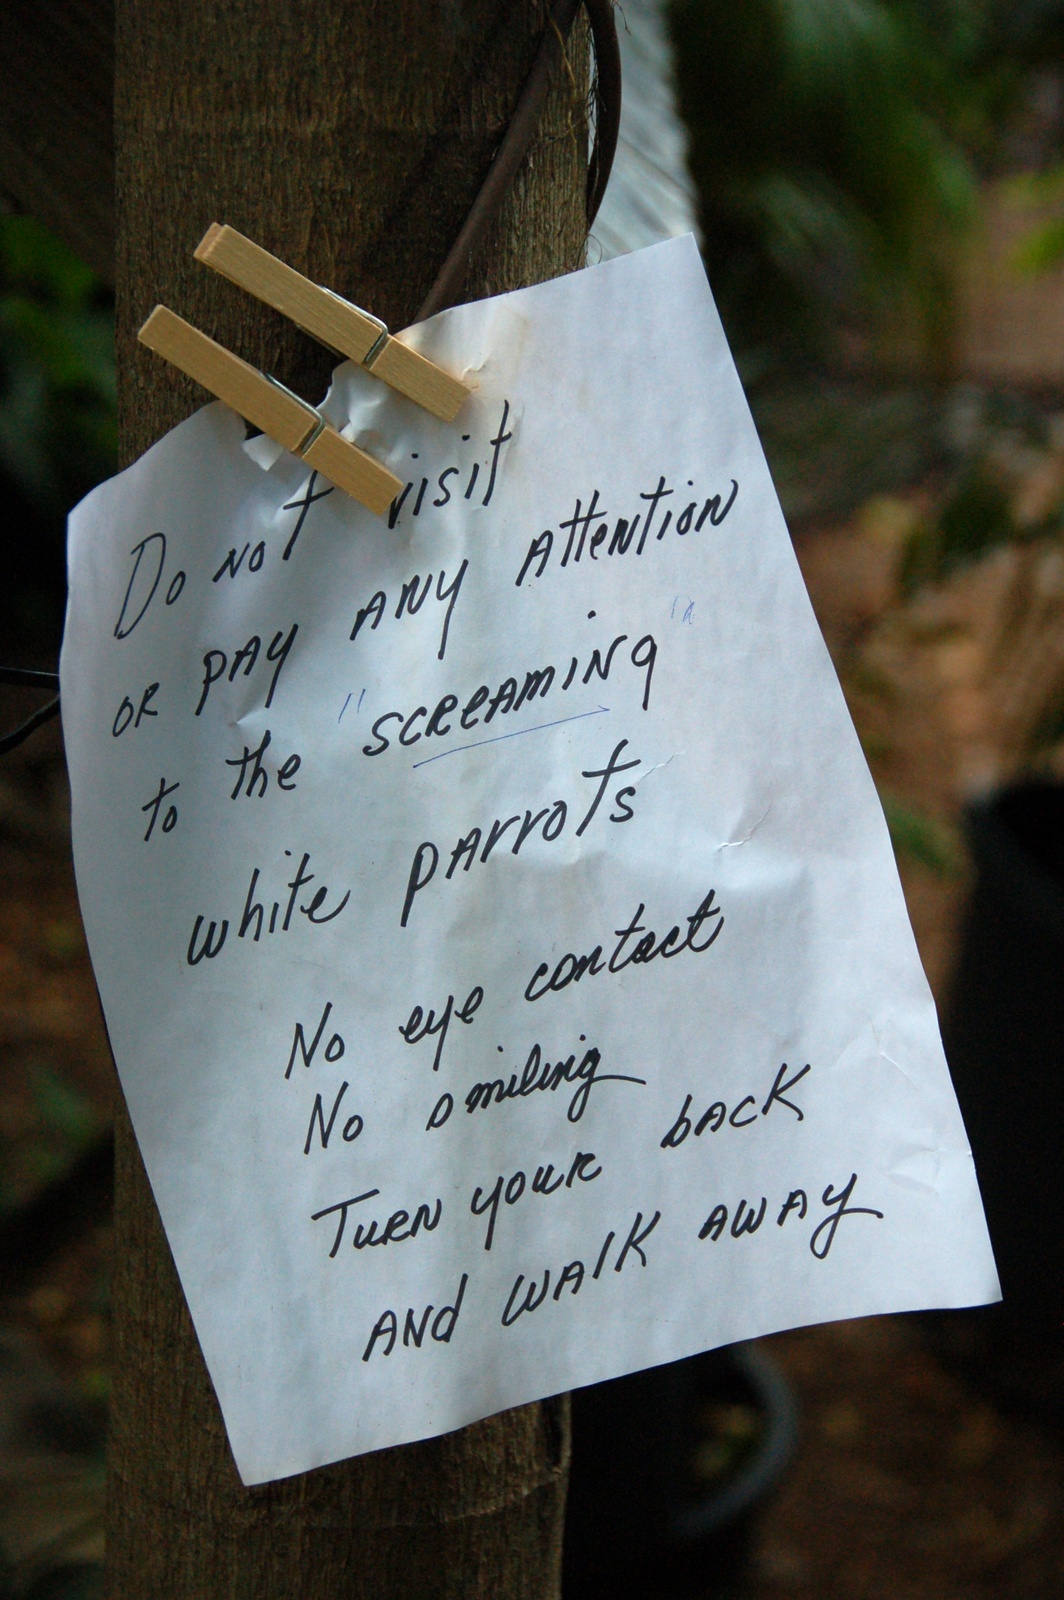 Do not visit
or pay any attention
to the "screaming"
white parrots
No eye contact
No smiling
Turn your back
and walk away